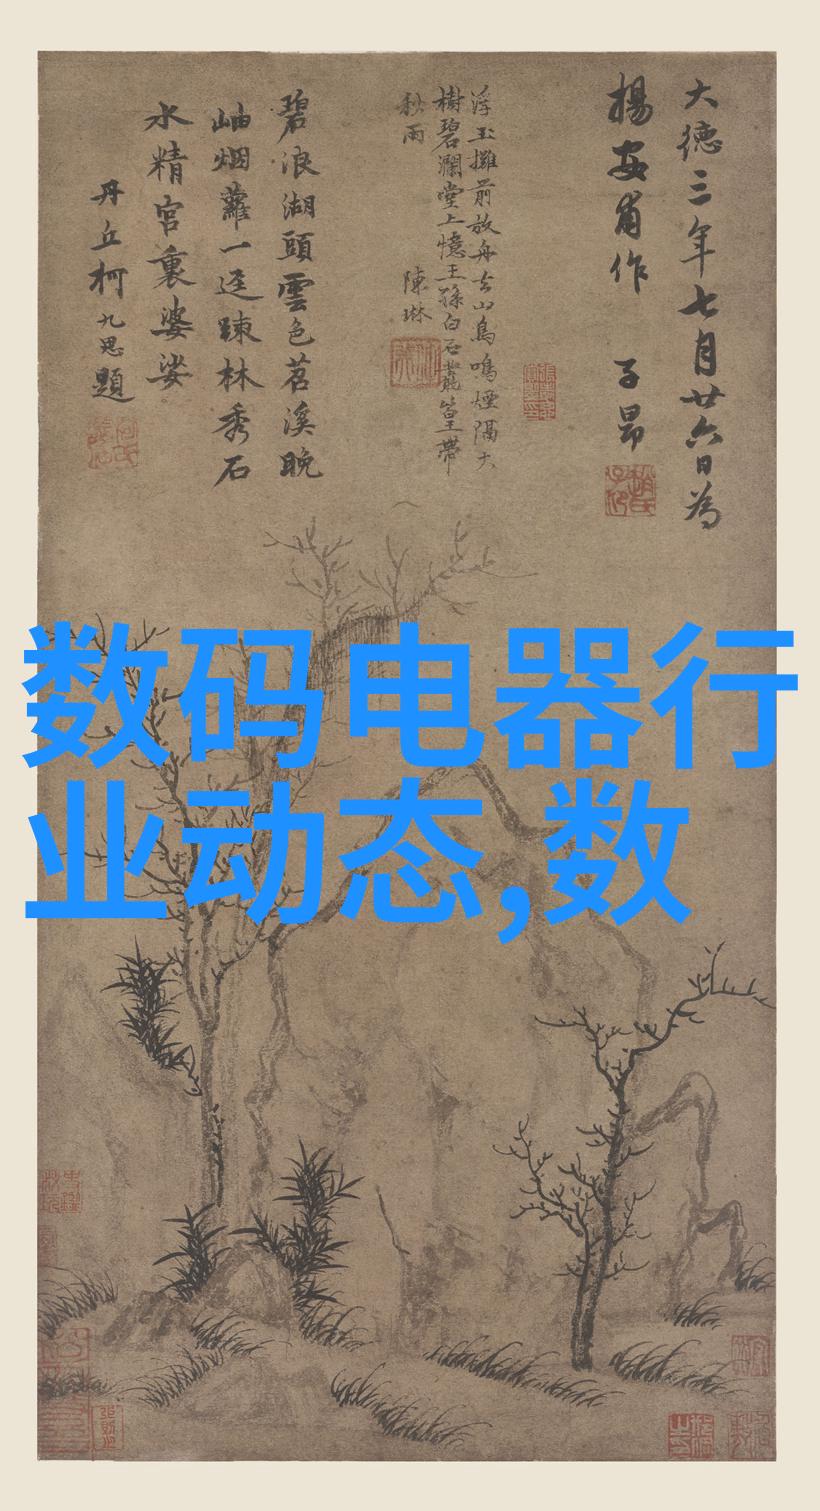 大德三年七月廿六日為
楊安甫作 子昂
浮玉攤前放舟去山鳥鳴煙隔大
樹碧瀾堂上憶王孫白石叢篁帶
秋雨 陳琳
碧浪湖頭雲色苕溪晚
岫烟蘿一逕踈林秀石
水精宮裏婆娑
丹丘柯九思題
数码电器行
业动态,数